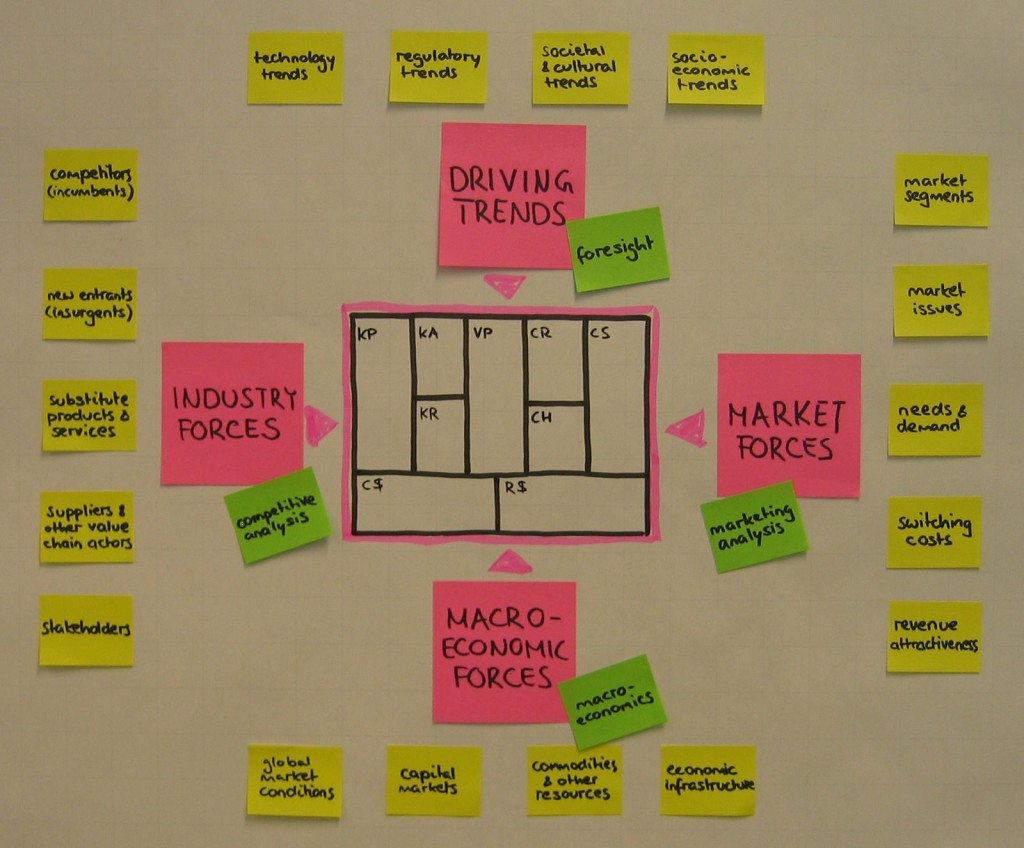 technology
trends
regulatory
trends
societal
& cultural
trends
socio-
economic
trends
DRIVING
TRENDS
foresight
competitors
(incumbents)
new entrants
(insurgents)
substitute
products &
services
suppliers &
other value
chain actors
stakeholders
INDUSTRY
FORCES
competitive
analysis
KP
KA
VP
CR
CS
KR
CH
C$
R$
MARKET
FORCES
marketing
analysis
market
segments
market
issues
needs &
demand
switching
costs
revenue
attractiveness
MACRO-
ECONOMIC
FORCES
macro-
economics
global
market
conditions
capital
markets
commodities
& other
resources
economic
infrastructure